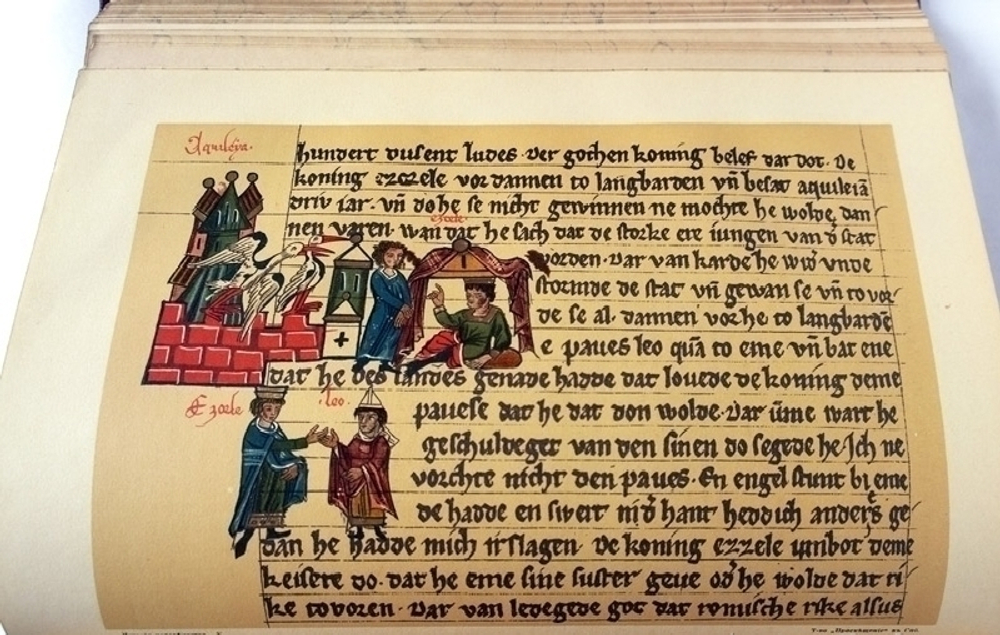 Aquileja.
hundert dusent ludes. Der gothen koning belef dar dot. De
koning ezzele vor dannen to langbarden vn̄ besat aquileiā
driv iar. vn̄ do he se nicht gewinnen ne mochte he wolde dan
ezcele
nen varen. wan dat he sach dat de storke ere iungen van d̄ stat
vorden. Dar van karde he wid̄ vnde
stormde de stat vn̄ gewan se vn̄ to vor
de se al. dannen vor he to langbardē
e paves leo quā to eme vn̄ bat ene
dat he des landes genade hadde dat louede de koning deme
Ezcele .leo.
pavese dat he dat don wolde. Dar ūme wart he
geschuldeget van den sinen do segede he. Ich ne
vorchte nicht den paves. En engel stunt bi eme
de hadde en swert in d̄ hant heddich anders ge
dan he hadde mich irslagen. De koning ezzele unbot deme
keisere do. dat he eme sine suster geue od̄ he wolde dat ri
ke tovoren. Dar van ledegede got dat romische rike alsus
Т-во „Просвѣщеніе“ въ Спб.